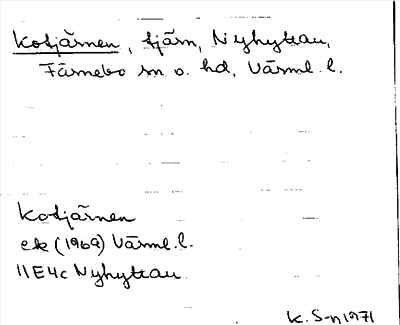 Kotjärnen, tjärn, N Nyhyttan,
Färnebo sn o. hd, Värml. l.
Kotjärnen
ek (1969) Värml. l.
11E4c Nyhyttan
K. S-n 1971